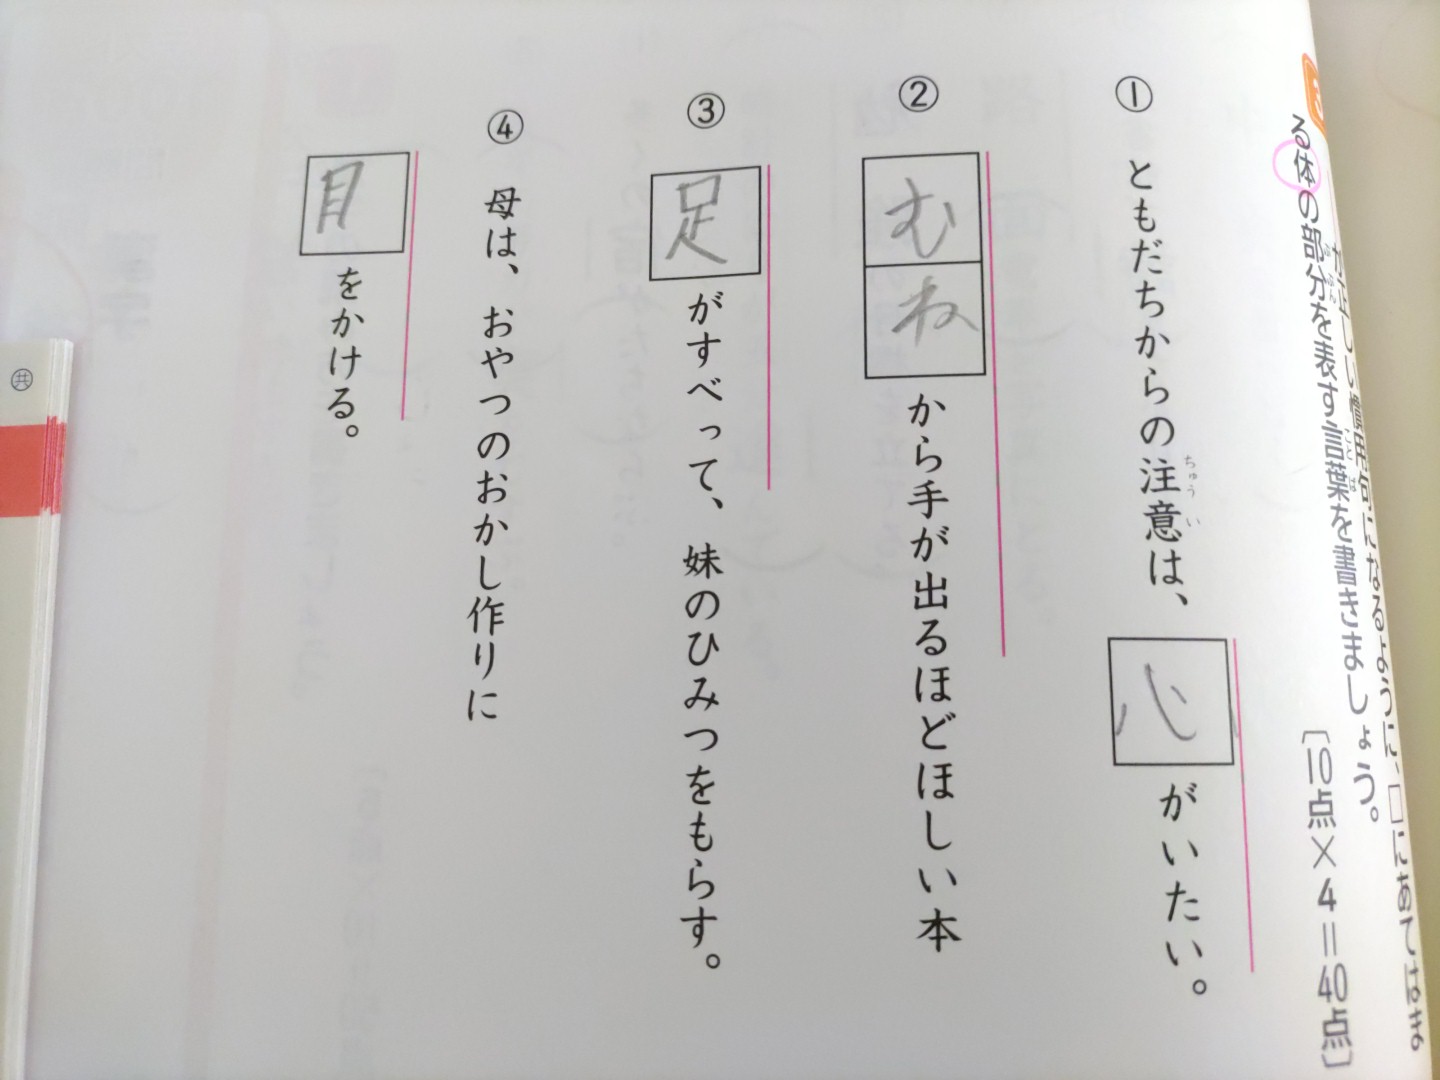 3
が正しい慣用句になるように、□にあてはま
る体の部分を表す言葉を書きましょう。
ぶぶん ことば
〔10点×4=40点〕
① ともだちからの注意は、心がいたい。
ちゅうい
② むねから手が出るほどほしい本
③ 足がすべって、妹のひみつをもらす。
④ 母は、おやつのおかし作りに
目をかける。
共